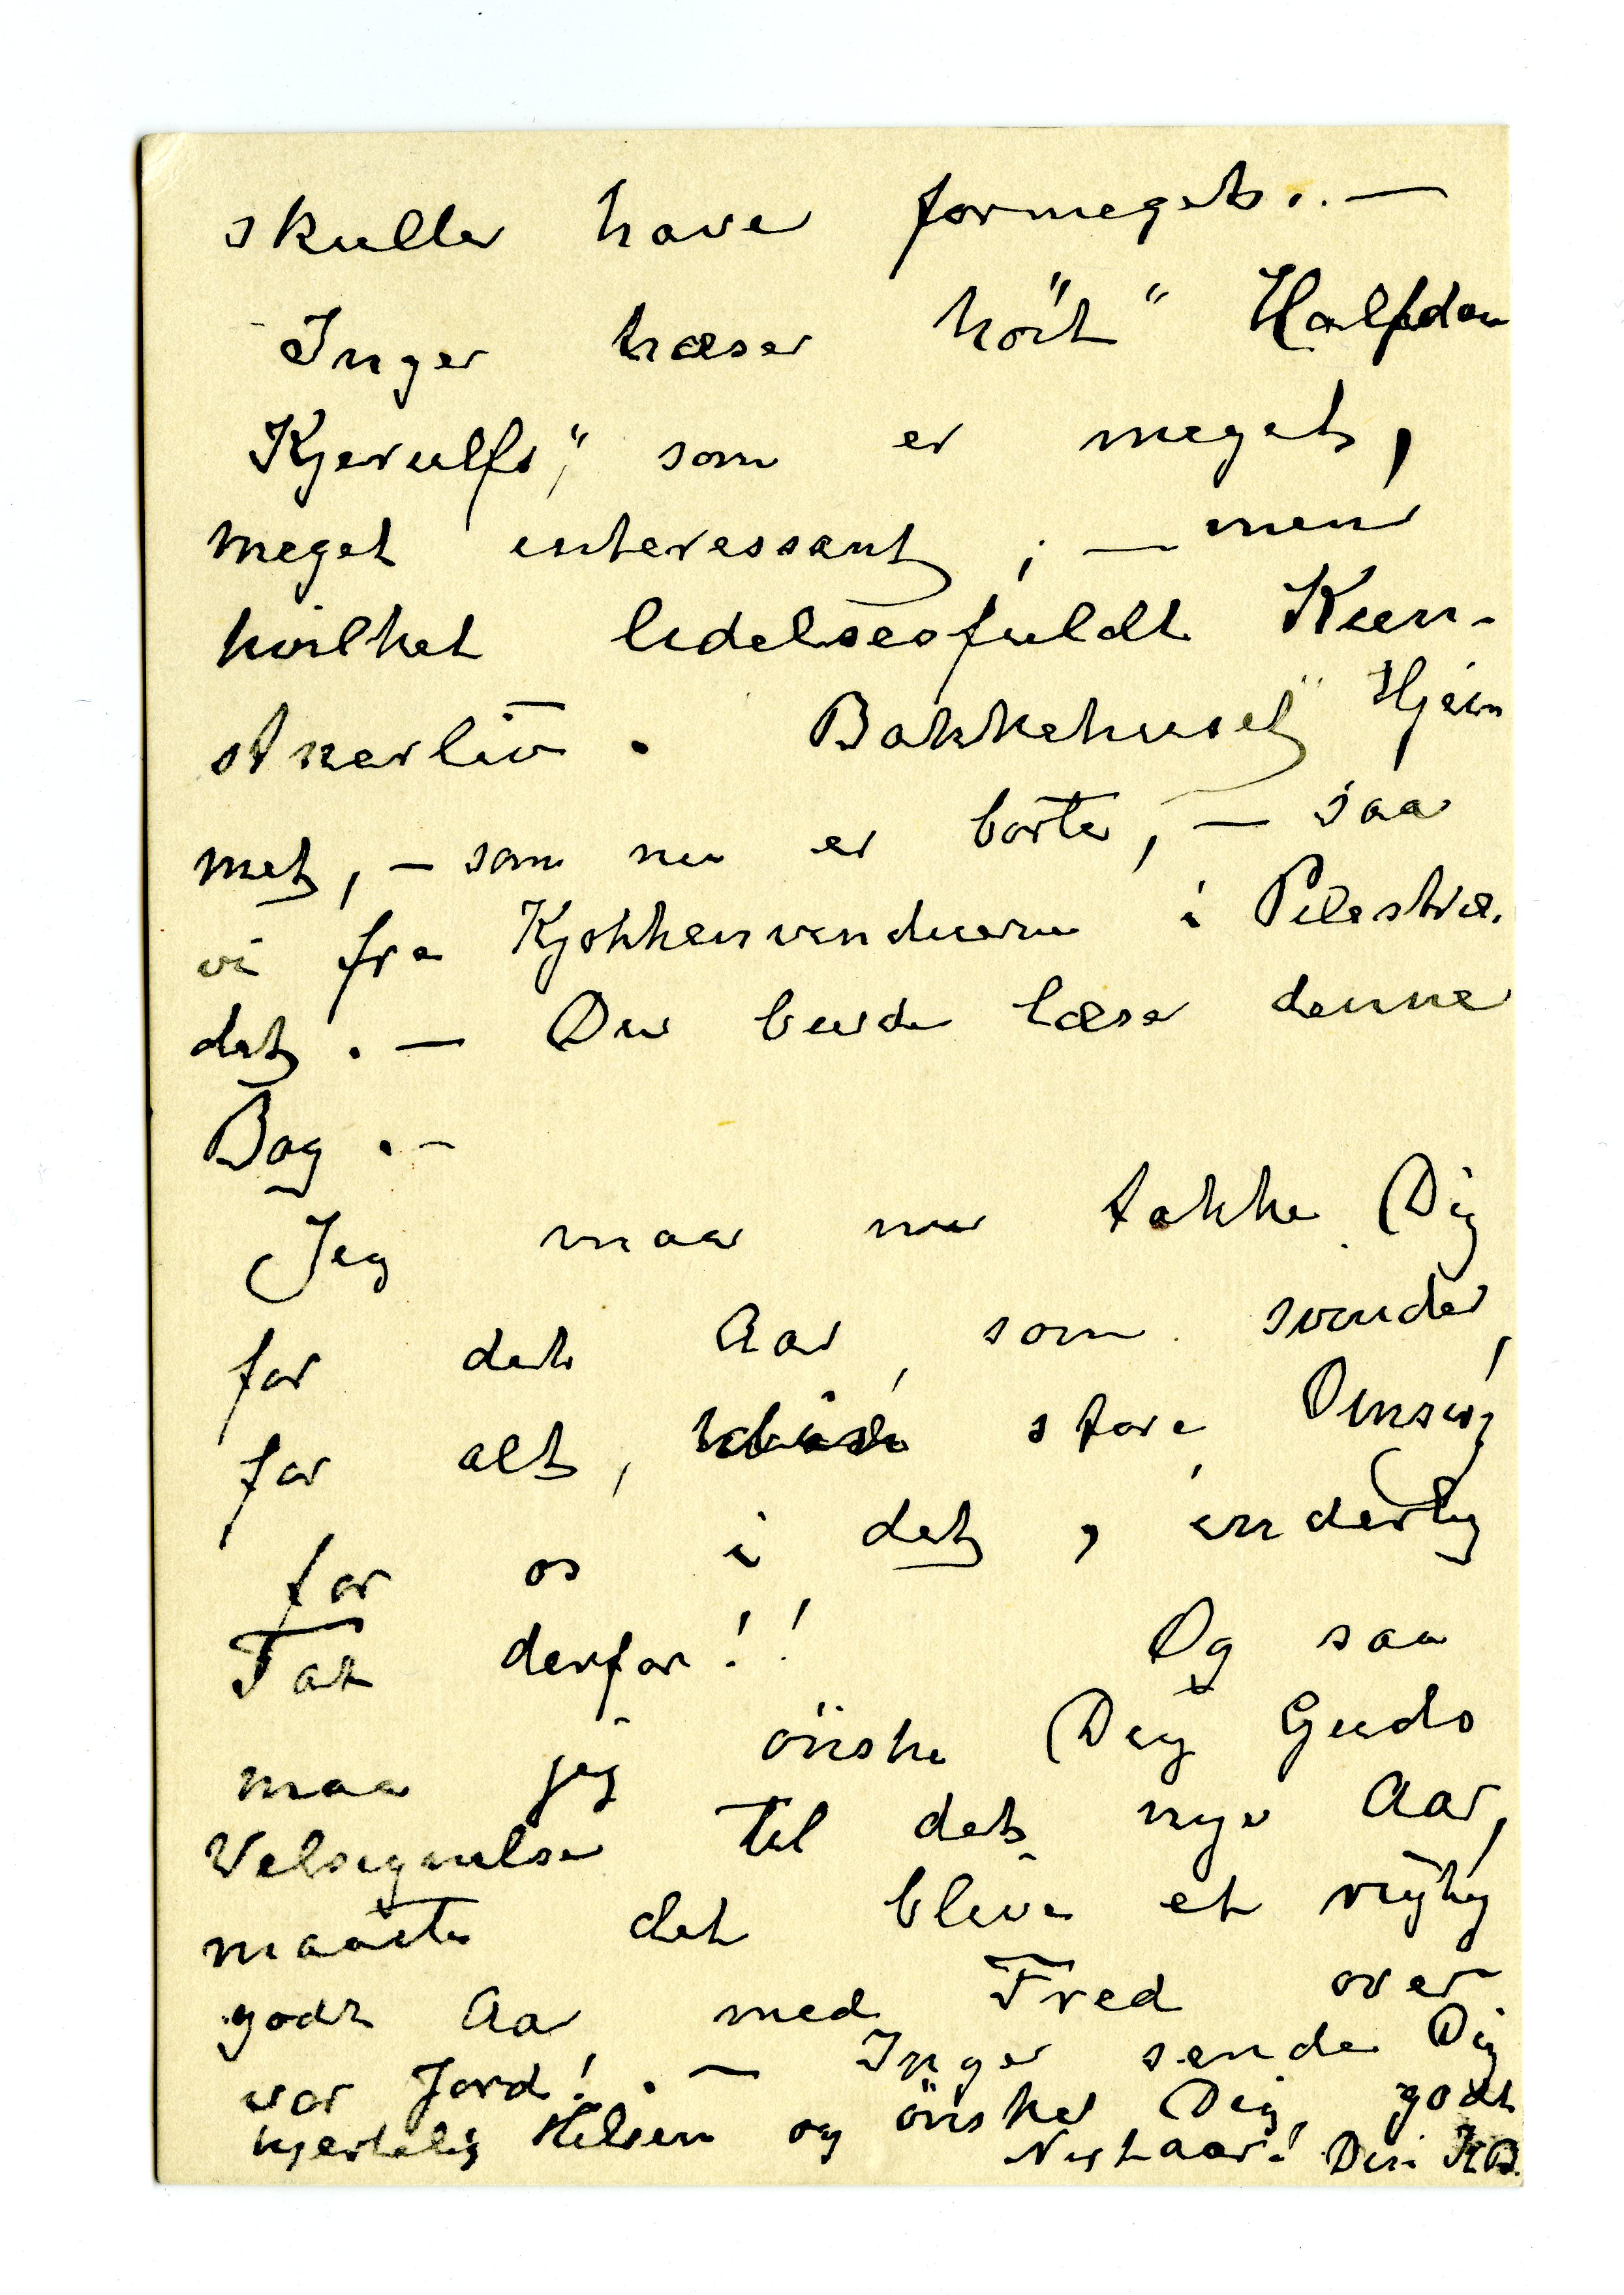 skulle have formeget. . —
Inger læser höit " Halfdan
Kjerulfs", som er meget,
meget interessant ; — men
hvilket lidelsesfuldt Kun-
stnerliv . Bakkehuset" Hjem
met, – som nu er borte, — saa
vi fra Kjøkkenvinduerne i Pilestræ.
det . — Du burde læse denne
Bog . –
Jeg maa nu takke Dig
for det Aar, som svinder,
for alt, store Omsorg
for os i det , inderlig
Tak derfor ! ! Og saa
maa jeg önske Dig Guds
Velsignelse til det nye Aar,
maatte det blive et rigtig
godt Aar med Fred over
vor Jord! . — Inger sender Dig
hjertelig Hilsen og önsker Dig godt
Nytaar! Din HB.